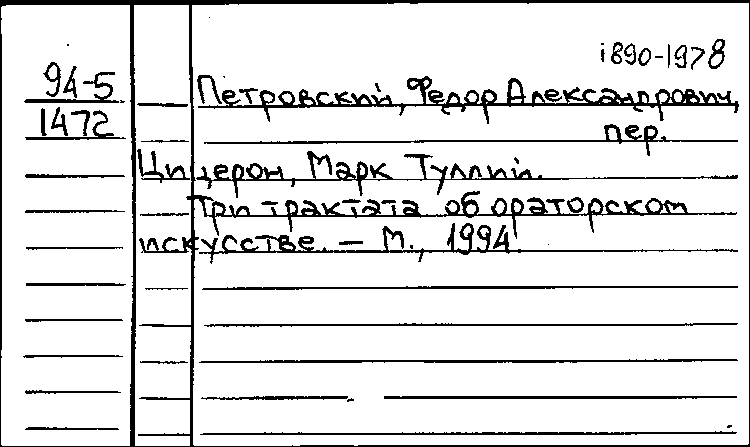 1890-1978
94-5
Петровский, Федор Александрович,
1472
пер.
Цицерон, Марк Туллий.
Три трактата об ораторском
искусстве. — М., 1994.